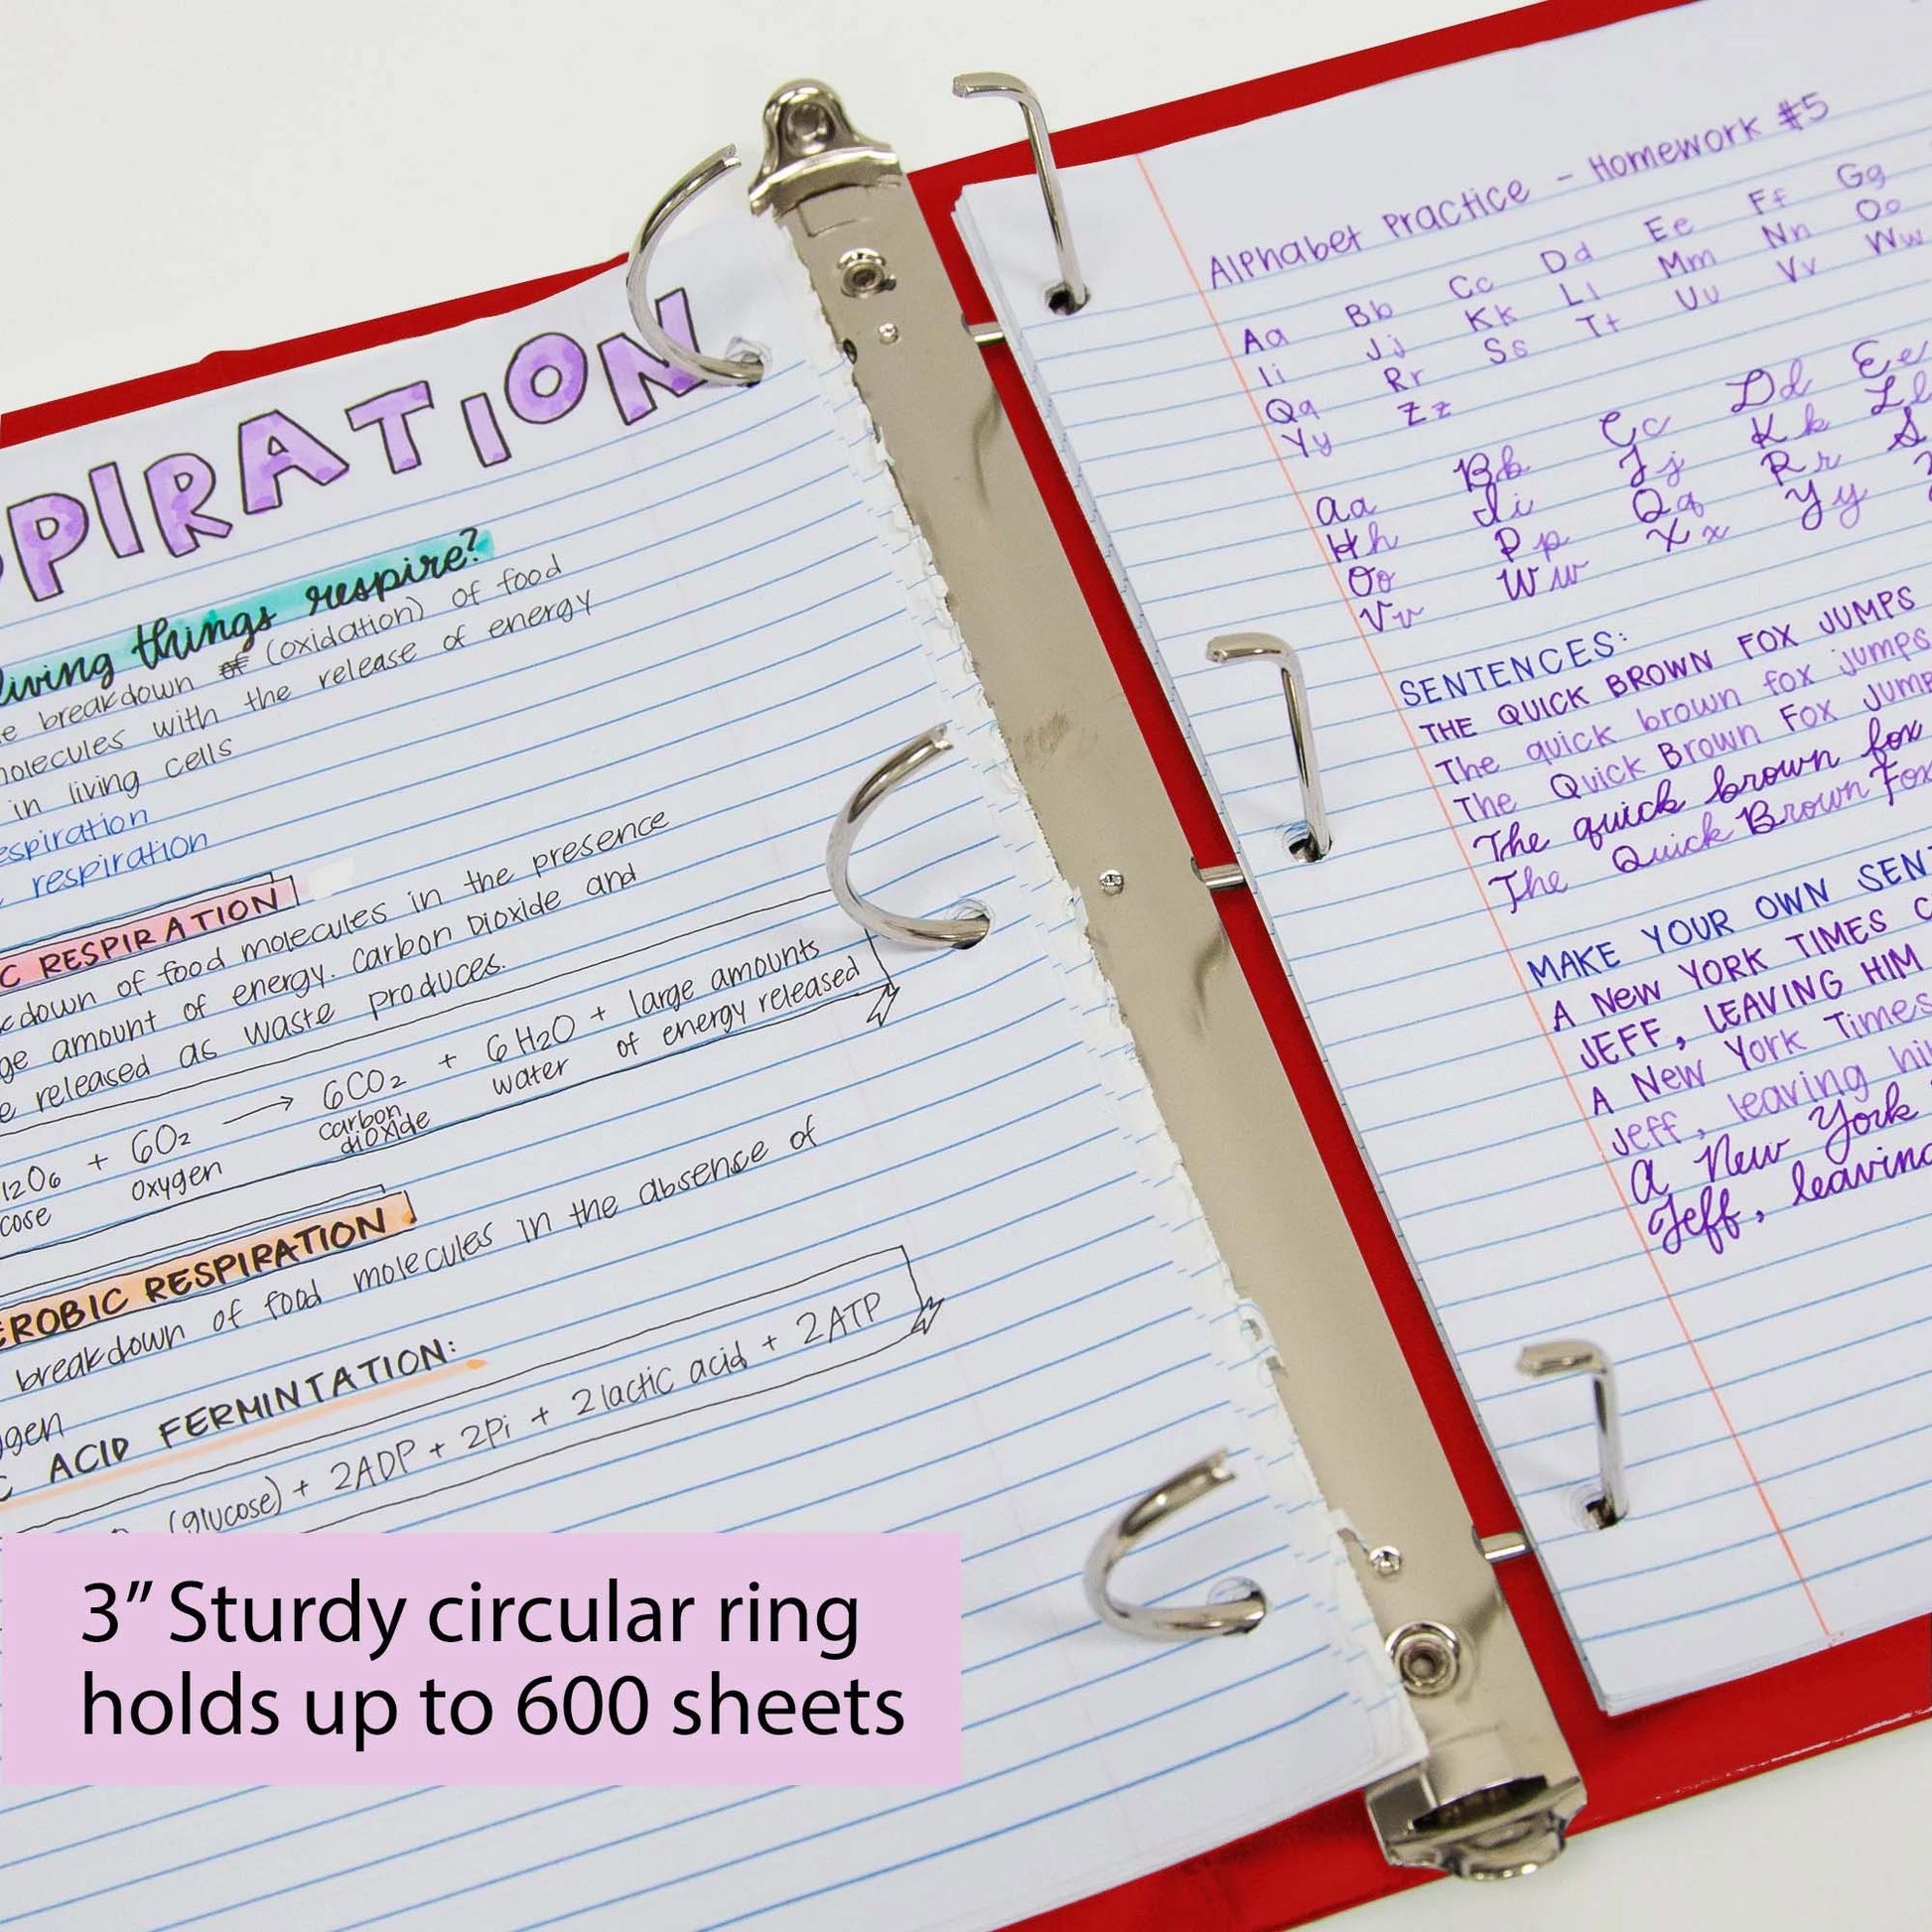 PIRATION
living things respire?
breakdown of (oxidation) of food
molecules with the release of energy
in living cells
respiration
respiration
C RESPIRATION
kdown of food molecules in the presence
ge amount of energy. Carbon Dioxide and
e released as waste produces.
12O6 + 6O2 → 6CO2 + 6H2O + large amounts
cose oxygen carbon dioxide water of energy released
EROBIC RESPIRATION
breakdown of food molecules in the absence of
ygen
C ACID FERMINTATION:
(glucose) + 2ADP + 2Pi + 2 lactic acid + 2ATP
3" Sturdy circular ring
holds up to 600 sheets
Alphabet Practice - Homework #5
Aa Bb Cc Dd Ee Ff Gg
Ii Jj Kk Ll Mm Nn Oo
Qq Rr Ss Tt Uu Vv Ww
Yy Zz
Aa Bb Cc Dd Ee
Hh Ii Jj Kk Ll
Oo Pp Qq Rr S
Vv Ww Xx Yy
SENTENCES:
THE QUICK BROWN FOX JUMPS
The quick brown fox jumps
The Quick Brown Fox Jump
The quick brown fox
The Quick Brown Fox
MAKE YOUR OWN SENT
A NEW YORK TIMES C
JEFF, LEAVING HIM
A New York Times
Jeff, leaving hi
A New York
Jeff, leaving